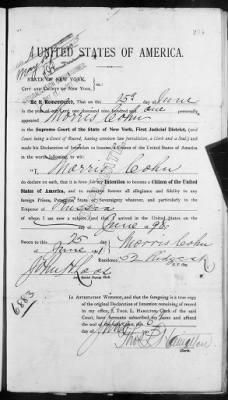 UNITED STATES OF AMERICA.
STATE OF NEW YORK,
CITY AND COUNTY OF NEW YORK,
Be it Remembered, That on the 25th day of June
in the year of our Lord one thousand nine hundred and one personally
appeared Morris Cohn
in the Supreme Court of the State of New York, First Judicial District, (said
Court being a Court of Record, having common law jurisdiction, a Clerk and a Seal,) and
made his Declaration of Intention to become a Citizen of the United States of America
in the words following, to wit:
I, Morris Cohn
do declare on oath, that it is bona fide my Intention to become a Citizen of the United
States of America, and to renounce forever all allegiance and fidelity to any
foreign Prince, Potentate, State or Sovereignty whatever, and particularly to the
Emperor of Russia
of whom I am now a subject (and that I arrived in the United States on the
day of June
Sworn to this 25 day Morris Cohn
of June
Residence 52
6883
In Attestation Whereof, and that the foregoing is a true copy
of the original Declaration of Intention remaining of record
in my office, I THOS. L. HAMILTON, Clerk of the said
Court, have hereunto subscribed my name and affixed
the seal of the said Court, this
Thos. L. Hamilton
Clerk.